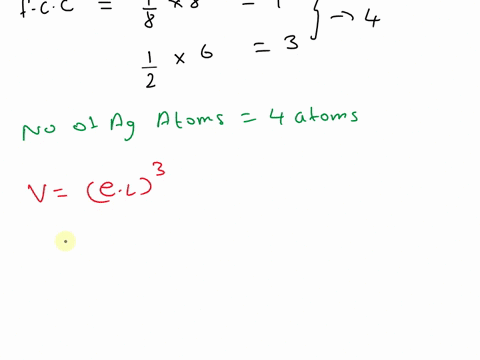 F.C.C = 1/8 × 8 = 1
1/2 × 6 = 3 } → 4
No of Ag Atoms = 4 atoms
V = (e.L)³